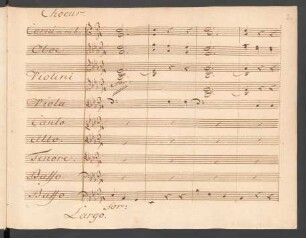 Choeur
Corni in
Oboe
Violini
Viola
Canto
Alto
Tenore
Basso
Basso
Largo.